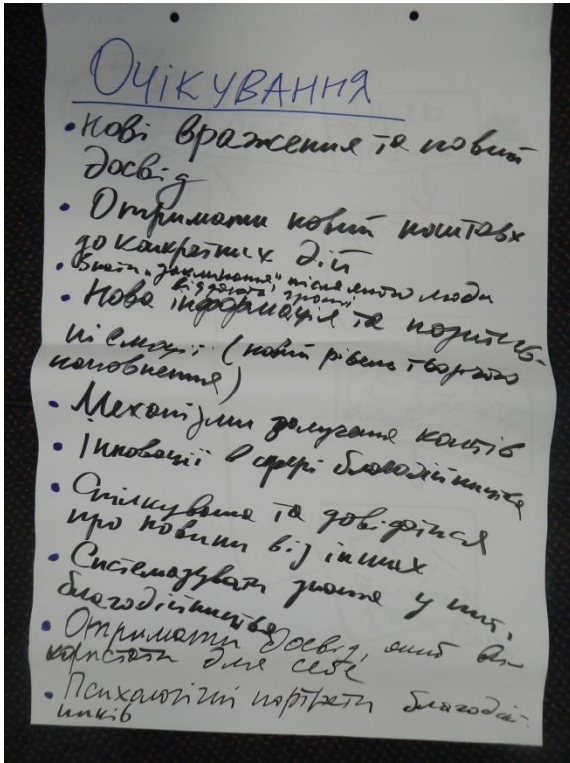 ОЧІКУВАННЯ
• Нові враження та новий
досвід
• Отримати новий поштовх
до конкретних дій
• Знати „заклинання" після якого люди
віддають гроші
• Нова інформація та позитив-
ні емоції (новий рівень творчого
наповнення)
• Механізми залучення коштів
• Інновації в сфері благодійництва
• Спілкування та довідатися
про новини від інших
• Систематизувати знання у пит.
благодійництва
• Отримати досвід, який ви-
користати для себе
• Психологічні портрети благодій-
ників